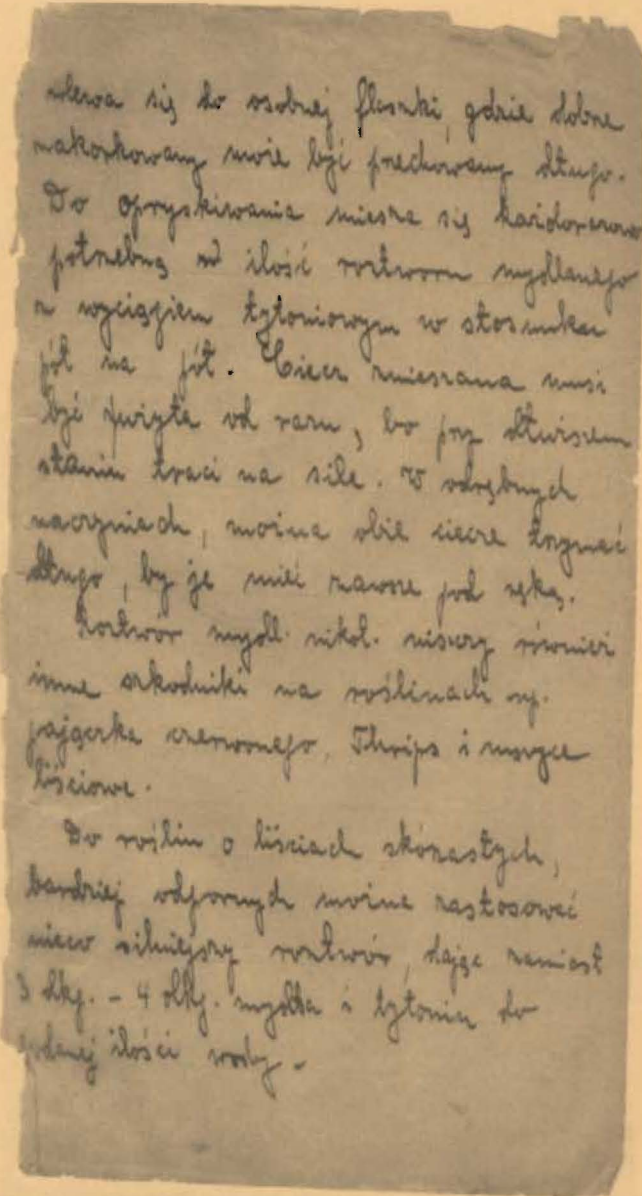 wlewa się do osobnej flaszki, gdzie dobrze
zakorkowany może być przechowany długo.
Do opryskiwania miesza się każdorazowo
potrzebną ilość roztworu mydlanego
z wyciągiem tytoniowym w stosunku
pół na pół. Ciecz zmieszana musi
być zużyta od razu, bo przy dłuższem
staniu traci na sile. W odrębnych
naczyniach, można obie ciecze trzymać
długo, by je mieć zawsze pod ręką.
Roztwór mydl. nikot. niszczy również
inne szkodniki na roślinach np.
pajączka czerwonego, Thrips i mszyce
liściowe.
Do roślin o liściach skórzastych,
bardziej odpornych można zastosować
nieco silniejszy roztwór, dając zamiast
3 dkg. - 4 dkg. mydła i tytoniu do
podanej ilości wody -